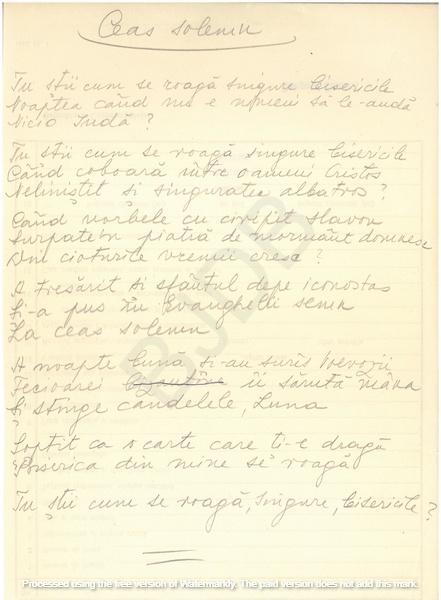 Ceas solemn
Tu știi cum se roagă singure bisericile
Noaptea când nu e nimeni să le-audă
Nicio Iudă?
Tu știi cum se roagă singure bisericile
Când coboară între oameni Cristos
Neliniștit și singuratec albatros?
Când vorbele cu ciripit slavon
Surpate'n piatră de mormânt domnesc
Din cioturile vremii cresc?
A tresărit și sfântul depe iconostas
Și-a pus în Evanghelii semn
La ceas solemn
A noapte bună și-au surâs
Fecioarei îi sărută mâna
Și stinge candelele, Luna
Șoptit ca o carte care ți-e dragă
Biserica din mine se roagă
Tu știi cum se roagă, singure, bisericile?
BJDB
Processed using the free version of Watermarkly. The paid version does not add this mark.